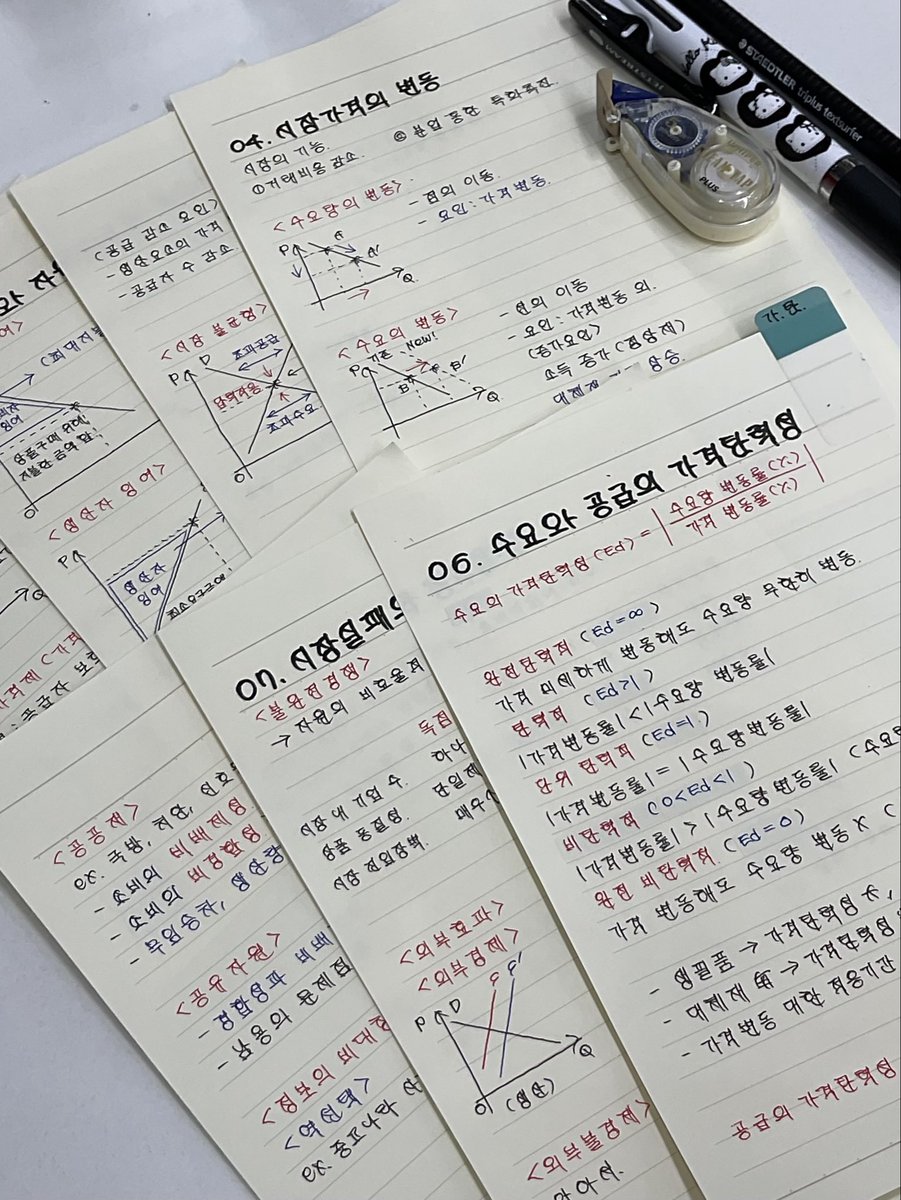 04. 시장가격의 변동
시장의 기능.
①거래비용 감소. ② 분업 통한 특화촉진.
<수요량의 변동> - 점의 이동.
- 요인: 가격변동.
P
A
A'
Q
<수요의 변동> - 선의 이동
기존 New! - 요인: 가격변동 외.
(증가요인)
P
B
B'
Q
소득 증가 (정상재)
대체재
상승.
<공급 감소 요인>
- 생산요소의 가격
- 공급자 수 감소.
<시장 불균형>
P D 초과공급
초과수요
O
(최대지불
잉여
상품구매 위해
지불한 금액 합.
O
Q
<생산자 잉어>
P
생산자
잉여
가.탄.
06. 수요와 공급의 가격탄력성
수요의 가격탄력성(Ed) = | 수요량 변동률(%) |
가격 변동률(%)
완전탄력적 (Ed=∞)
가격 미세하게 변동해도 수요량 무한히 변동.
탄력적 (Ed>1)
|가격변동률| < |수요량 변동률|
단위 탄력적 (Ed=1)
|가격변동률| = |수요량변동률|
비탄력적 (0<Ed<1)
|가격변동률| > |수요량변동률| (수요량
완전 비탄력적 (Ed=0)
가격 변동해도 수요량 변동 X (
- 생필품 → 가격탄력성
- 대체재 有 → 가격탄력성
- 가격변동 대한 적응기간
공급의 가격탄력성
07. 시장실패와
<불완전경쟁>
→ 자원의 비효율적
독점
시장 내 기업 수. 하나
상품 동질성. 단일제
시장 진입장벽. 매우
<외부효과>
<외부경제>
P D S S'
Q
O (생산)
<외부불경제>
<공공재>
ex. 국방, 치안,
- 소비의 비배제성
- 소비의 비경합성
- 무임승차, 생산량
<공유자원>
- 경합성과 비배
- 남용의 문제점
<정보의 비대칭
<역선택>
ex. 중고나라
STAEDTLER triplus textsurfer
PLUS